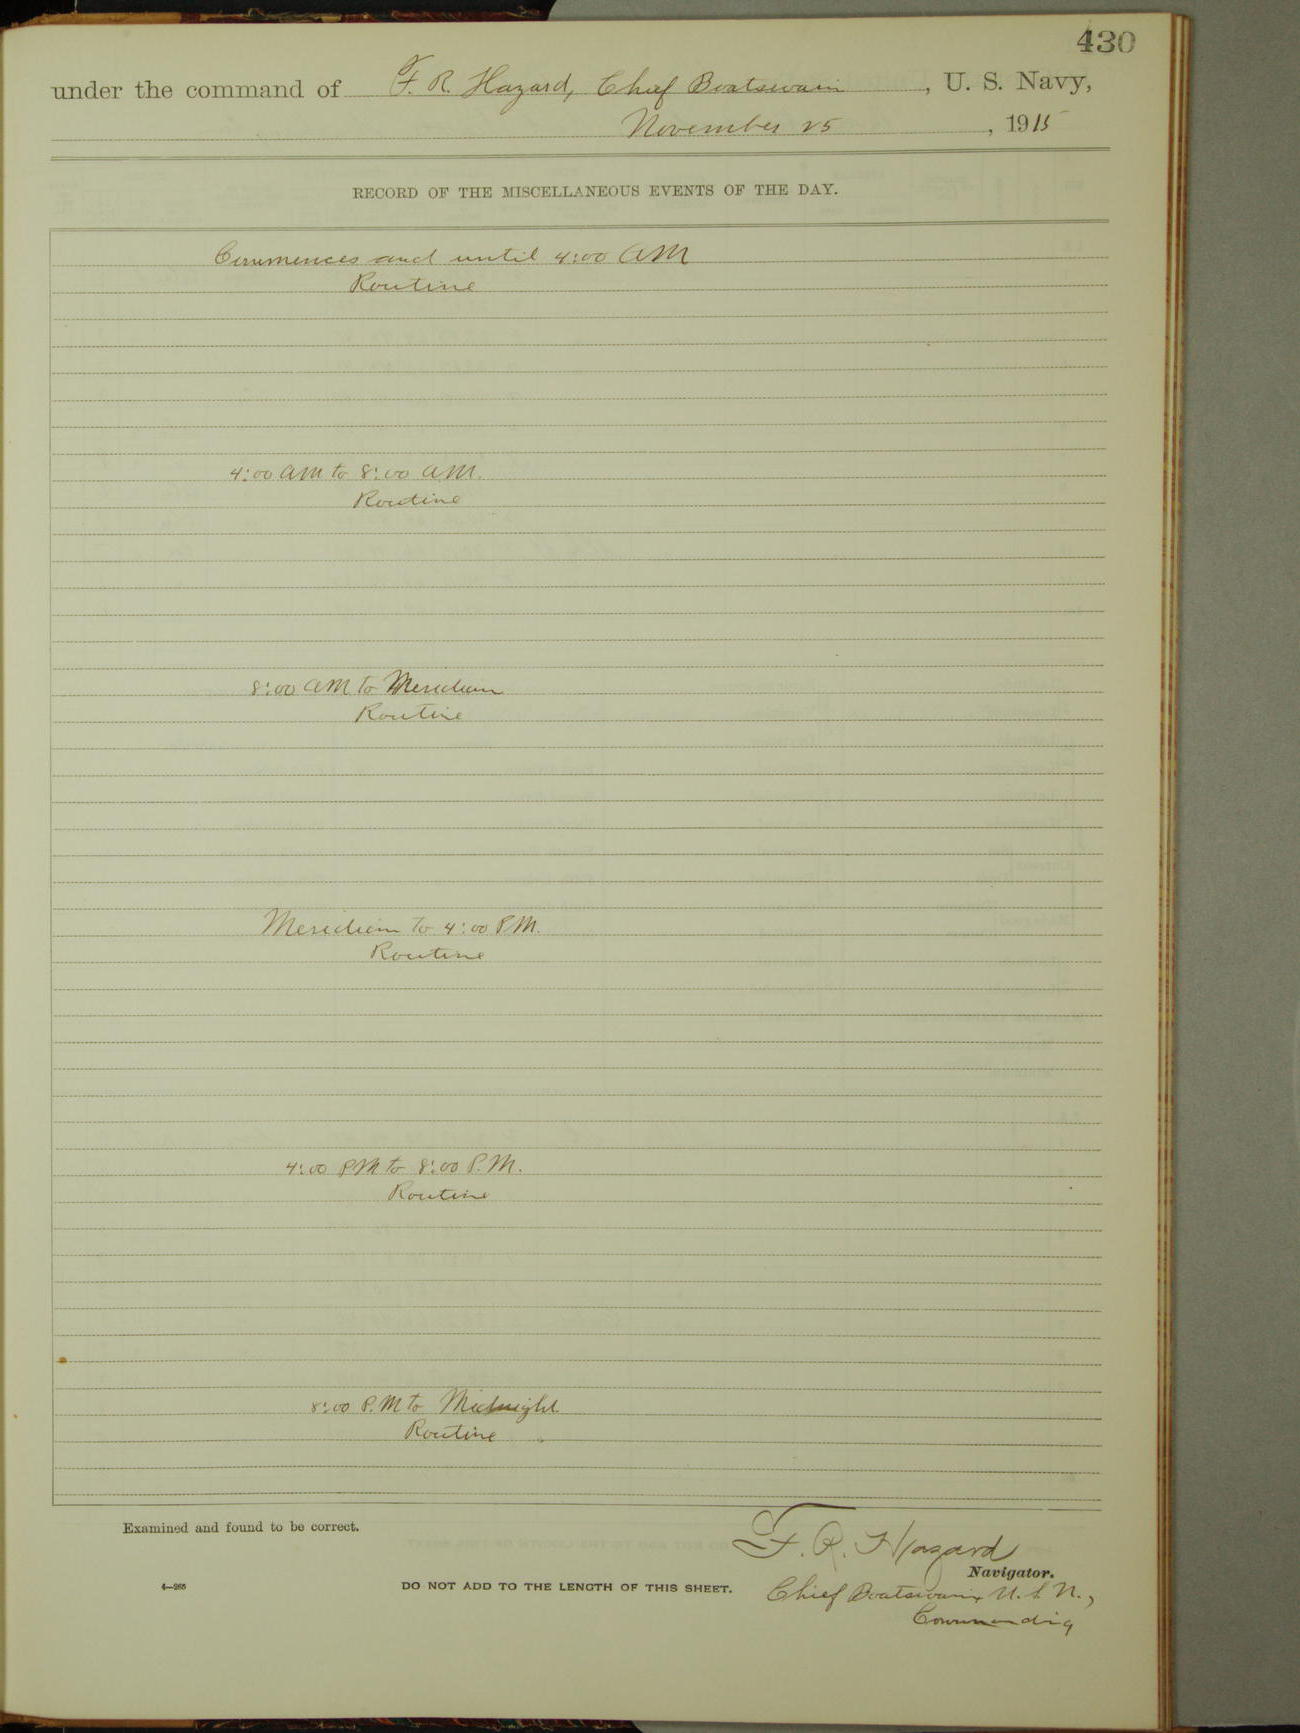 430
under the command of F. R. Hazard, Chief Boatswain, U. S. Navy,
November 25, 1915
RECORD OF THE MISCELLANEOUS EVENTS OF THE DAY.
Commences and until 4:00 AM
Routine
4:00 AM to 8:00 AM.
Routine
8:00 AM to Meridian
Routine
Meridian to 4:00 PM.
Routine
4:00 PM to 8:00 P.M.
Routine
8:00 P.M to Midnight
Routine
Examined and found to be correct.
F. R. Hazard
Navigator.
4—265
DO NOT ADD TO THE LENGTH OF THIS SHEET.
Chief Boatswain, U. S. N.,
Commanding